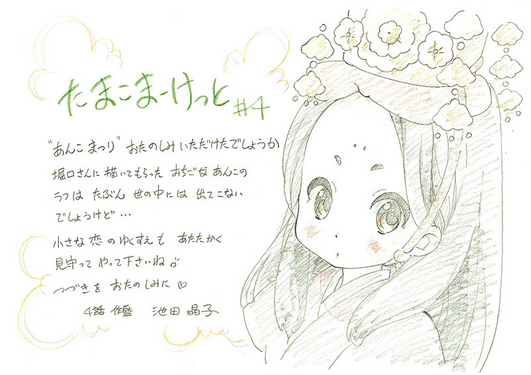 たまこまーけっと #4
"あんこまつり" おたのしみいただけたでしょうか
堀口さんに描いてもらった おちごなあんこの
ラフは たぶん 世の中には 出てこない
でしょうけど…
小さな恋のゆくすえも あたたかく
見守って やって下さいね♪
つづきを おたのしみに♡
4話 作監 池田 晶子